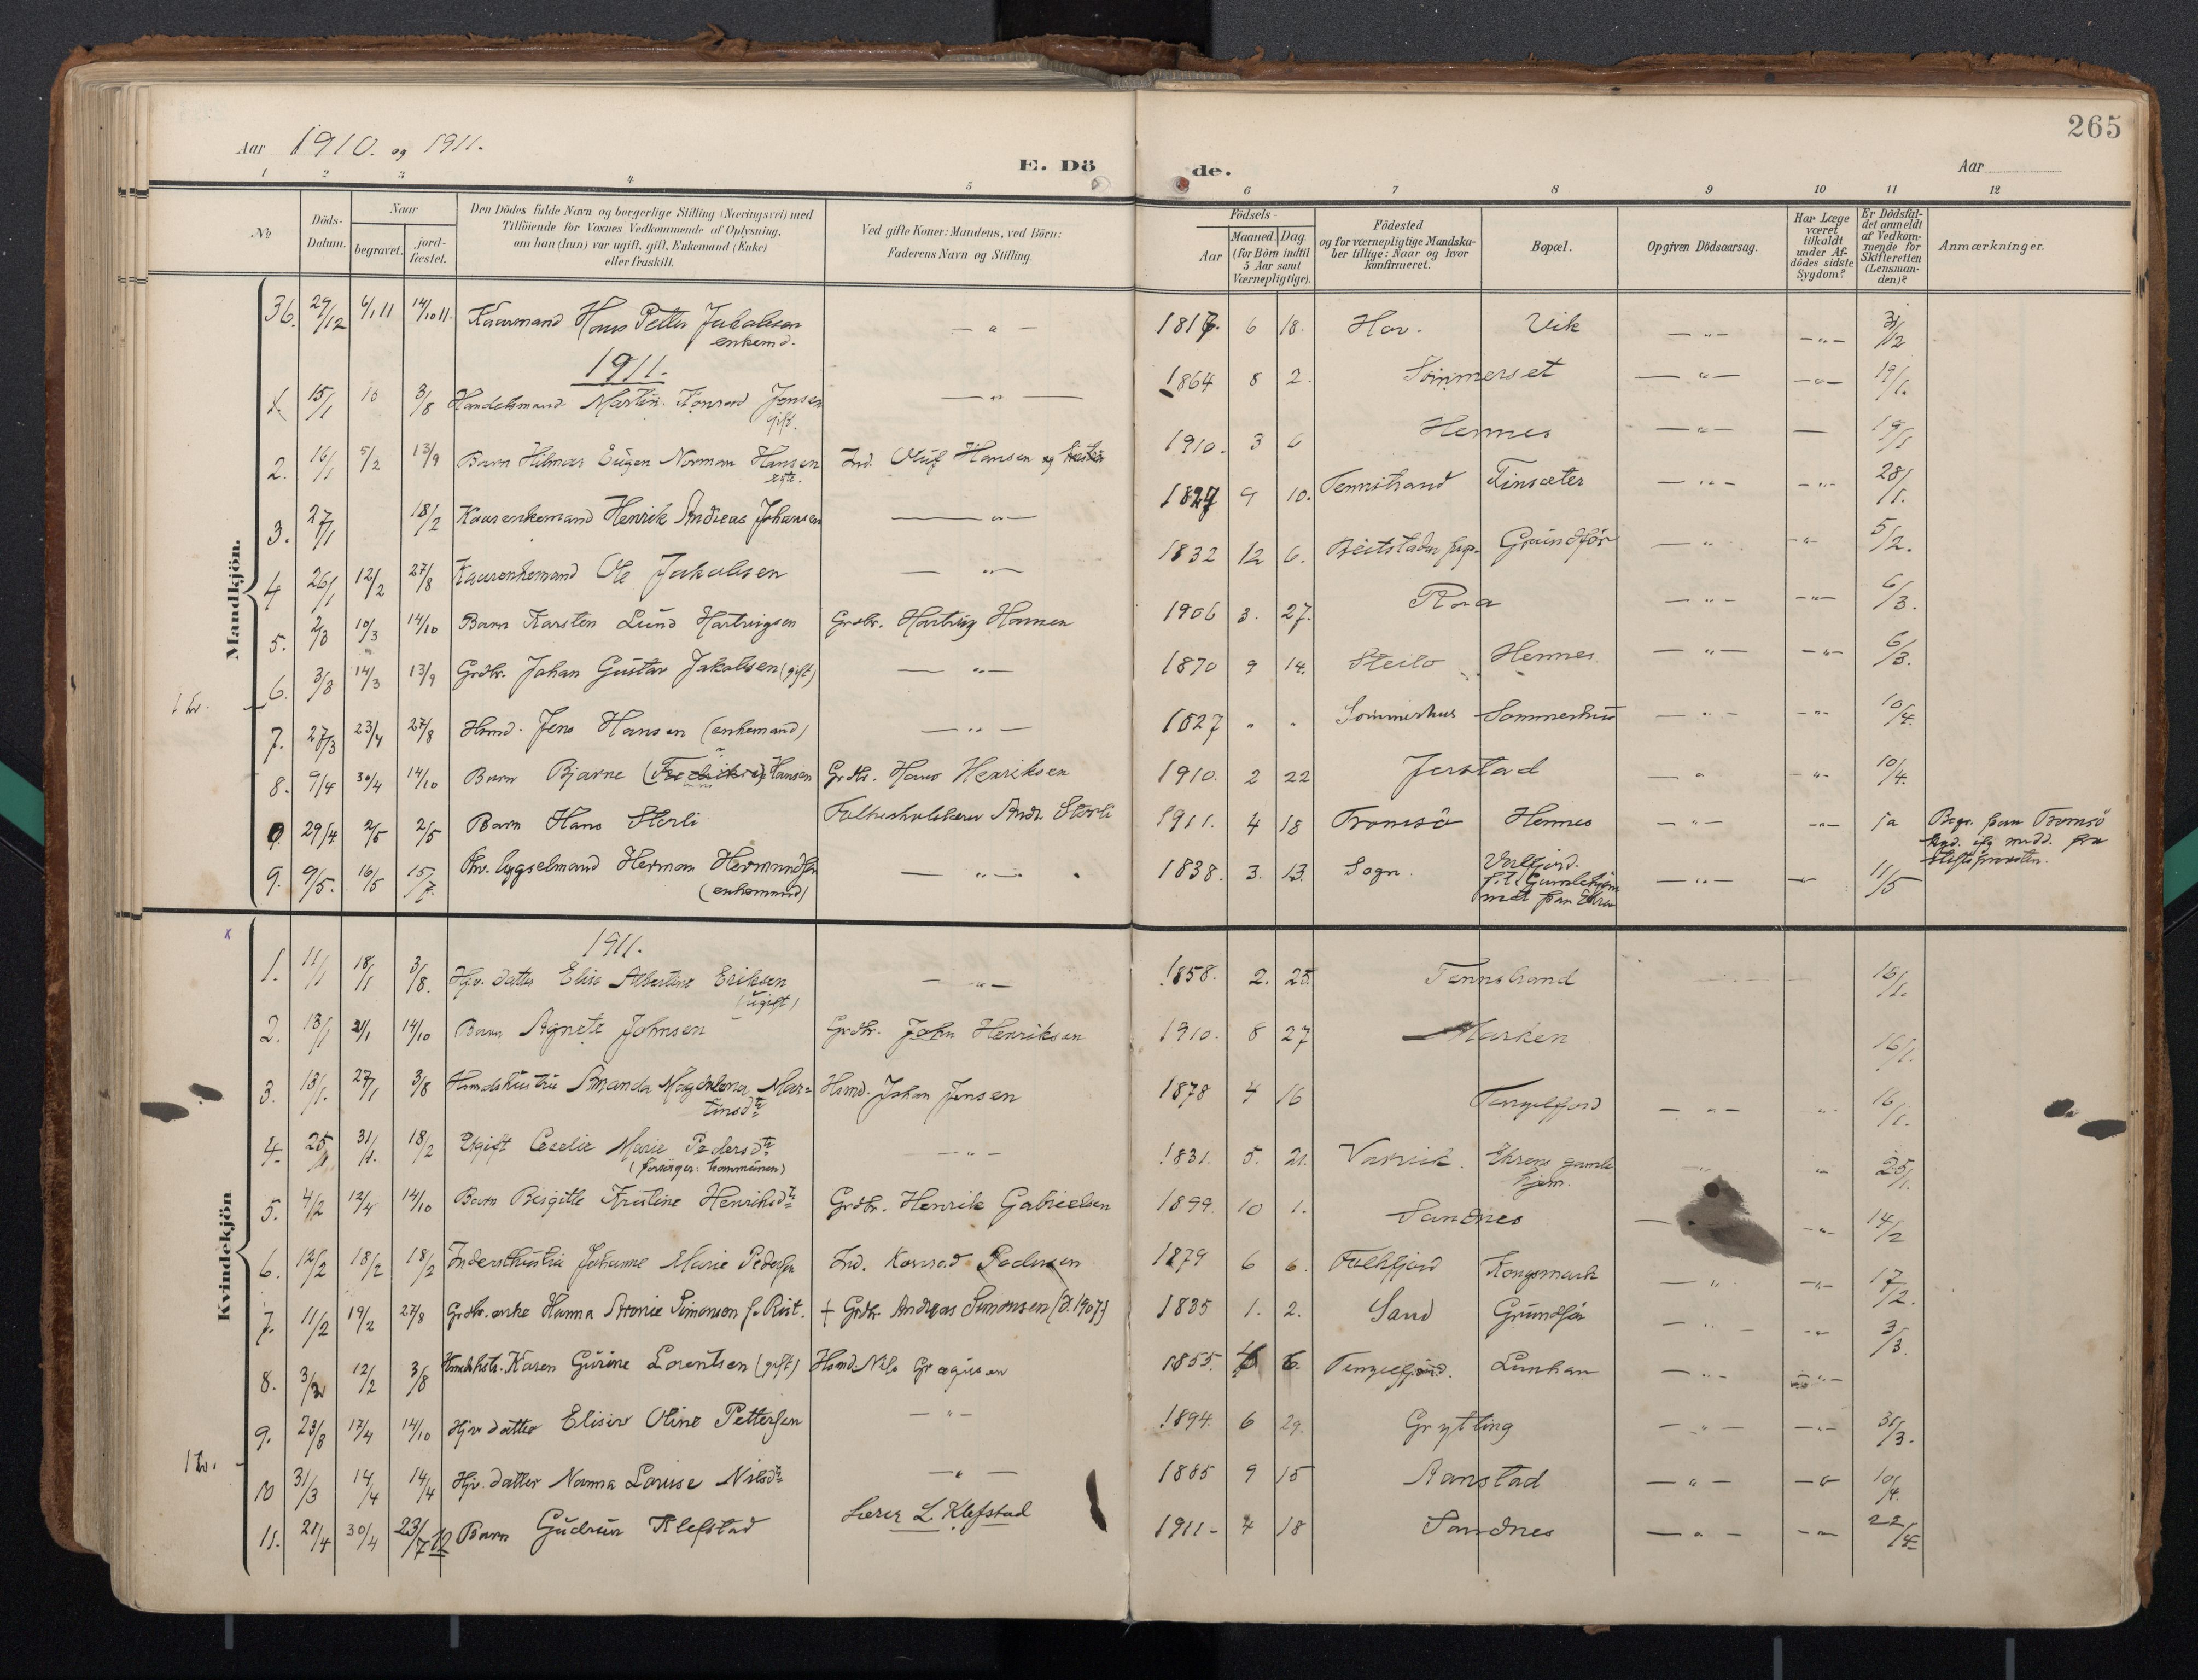 265
Aar 1910. og 1911.
E. Dö de.
Aar
1 2 3 4 5 6 7 8 9 10 11 12
No
Döds-Datum.
Naar
begravet.
jord-fæstet.
Den Dödes fulde Navn og borgerlige Stilling (Næringsvei) med
Tilföiende for Voxnes Vedkommende af Oplysning,
om han (hun) var ugift, gift, Enkemand (Enke)
eller fraskilt.
Ved gifte Koner: Mandens, ved Börn:
Faderens Navn og Stilling.
Födsels-
Aar
Maaned.
Dag.
(for Börn indtil
5 Aar samt
Værnepligtige).
Födested
og for værnepligtige Mandska-
ber tillige: Naar og hvor
konfirmeret.
Bopæl.
Opgiven Dödsaarsag.
Har Læge
været
tilkaldt
under Af-
dödes sidste
Sygdom?
Er Dödsfal-
det anmeldt
af Vedkom-
mende for
Skifteretten
(Lensman-
den)?
Anmærkninger.
Mandkjön.
36. 29/12 6/1 11 14/10 11. Kaarmand Hans Petter Jakobsen 6 18. Hov. Vik
enkemd.
1911.
1. 15/1 3/8 Handelsmand Martin Konrad Jensen 1864 8 2. Sommerset 19/1.
gift.
2. 16/1 5/2 13/9 Barn Hilmar Eugen Norman Hansen Ind. Oluf Hansen og 1910. 3 6 Hennes 19/1
ægte.
3. 27/1 18/2 Kaarenkemand Henrik Andreas Johansen 9 10. Tennstrand Finsæter 28/1.
4 26/1 12/2 27/8 Kaarenkemand Ole Jakobsen 1832 12 6. Beitstaden Grundför 5/2.
5. 2/3 10/3 14/10 Barn Karsten Lund Hartvigsen Grdbr. Hartvig Hansen 1906 3. 27. 6/3.
1 tv.
6. 3/3 14/3 13/9 Grdbr. Johan Gustav Jakobsen (gift) 1870 9 14. Steilo Hennes 6/3.
7. 27/3 23/4 27/8 Hsmd. Jens Hansen (enkemand) 1827 " " Sommerhus Sommerhus 10/4.
8. 9/4 30/4 14/10 Barn Bjarne (Fredrik) Hansen Grdbr. Hans Henriksen 1910. 2 22 Jerstad 10/4.
29/4 2/5 2/5 Barn Hans Storli Folkeskolelærer Andr. Storli 1911. 4 18 Tromsö Hennes ja Begr. fran Tromsö
9. 9/5. 16/5 15/7. Herman Hermundsen 1838. 3. 13. Sogn. 11/5
(enkemand)
Kvindekjön
1911.
1. 11/1 18/1 3/8. Hjv. datter Elise Albertine Eriksen 1858. 2. 25. Tennstrand 16/1.
(ugift)
2. 13/1 21/1 14/10 Barn Agnete Johnsen Grdbr. John Henriksen 1910. 8 27 Marken 16/1.
3. 13/1. 27/1 3/8 Hsmdshustru Amanda Magdalena Mar= Hsmd. Johan Jensen 1878 4 16 Tengelfjord 16/1.
tinsdtr
4. 25/1 31/1. 18/2 Ugift Cecelie Marie Pedersdtr 1831. 5. 21. Varvik. Ehrens gamle 25/1.
(forsörges: kommunen) hjem.
5. 4/2 12/4 14/10 Barn Birgitte Kristine Henriksdtr Grdbr. Henrik Gabrielsen 1899. 10 1. Sandnes 14/2
6. 12/2 18/2 18/2 Indersthustru Johanne Marie Pedersen Ind. Konrad Pedersen 1879 6 6. Falkfjord Kongsmark 17/2.
7. 11/2 19/2 27/8 Grdbr.enke Hanna Simonsen f. Rist. + Grdbr. Andreas Simonsen (d. 1907) 1835 1. 2. Sand Grundför 3/3.
8. 12/2 3/8 Karen Gurine Lorentsen (gift) Hsmd. Nils Gregusen 1855. 6. Tengelfjord. Lunhan
9. 23/3 17/4 14/10 Hjv. datter Elisiv Oline Pettersen 1894. 6 29. Grytting 31/3.
1 tv.
10 31/3 14/4 14/4 Hjv. datter Norma Louise Nilsdtr 1885 9 15 Aanstad 10/4.
11. 21/4 30/4 23/7 12 Barn Gudrun Klefstad Lærer L. Klefstad 1911- 4 18 Sandnes 22/4